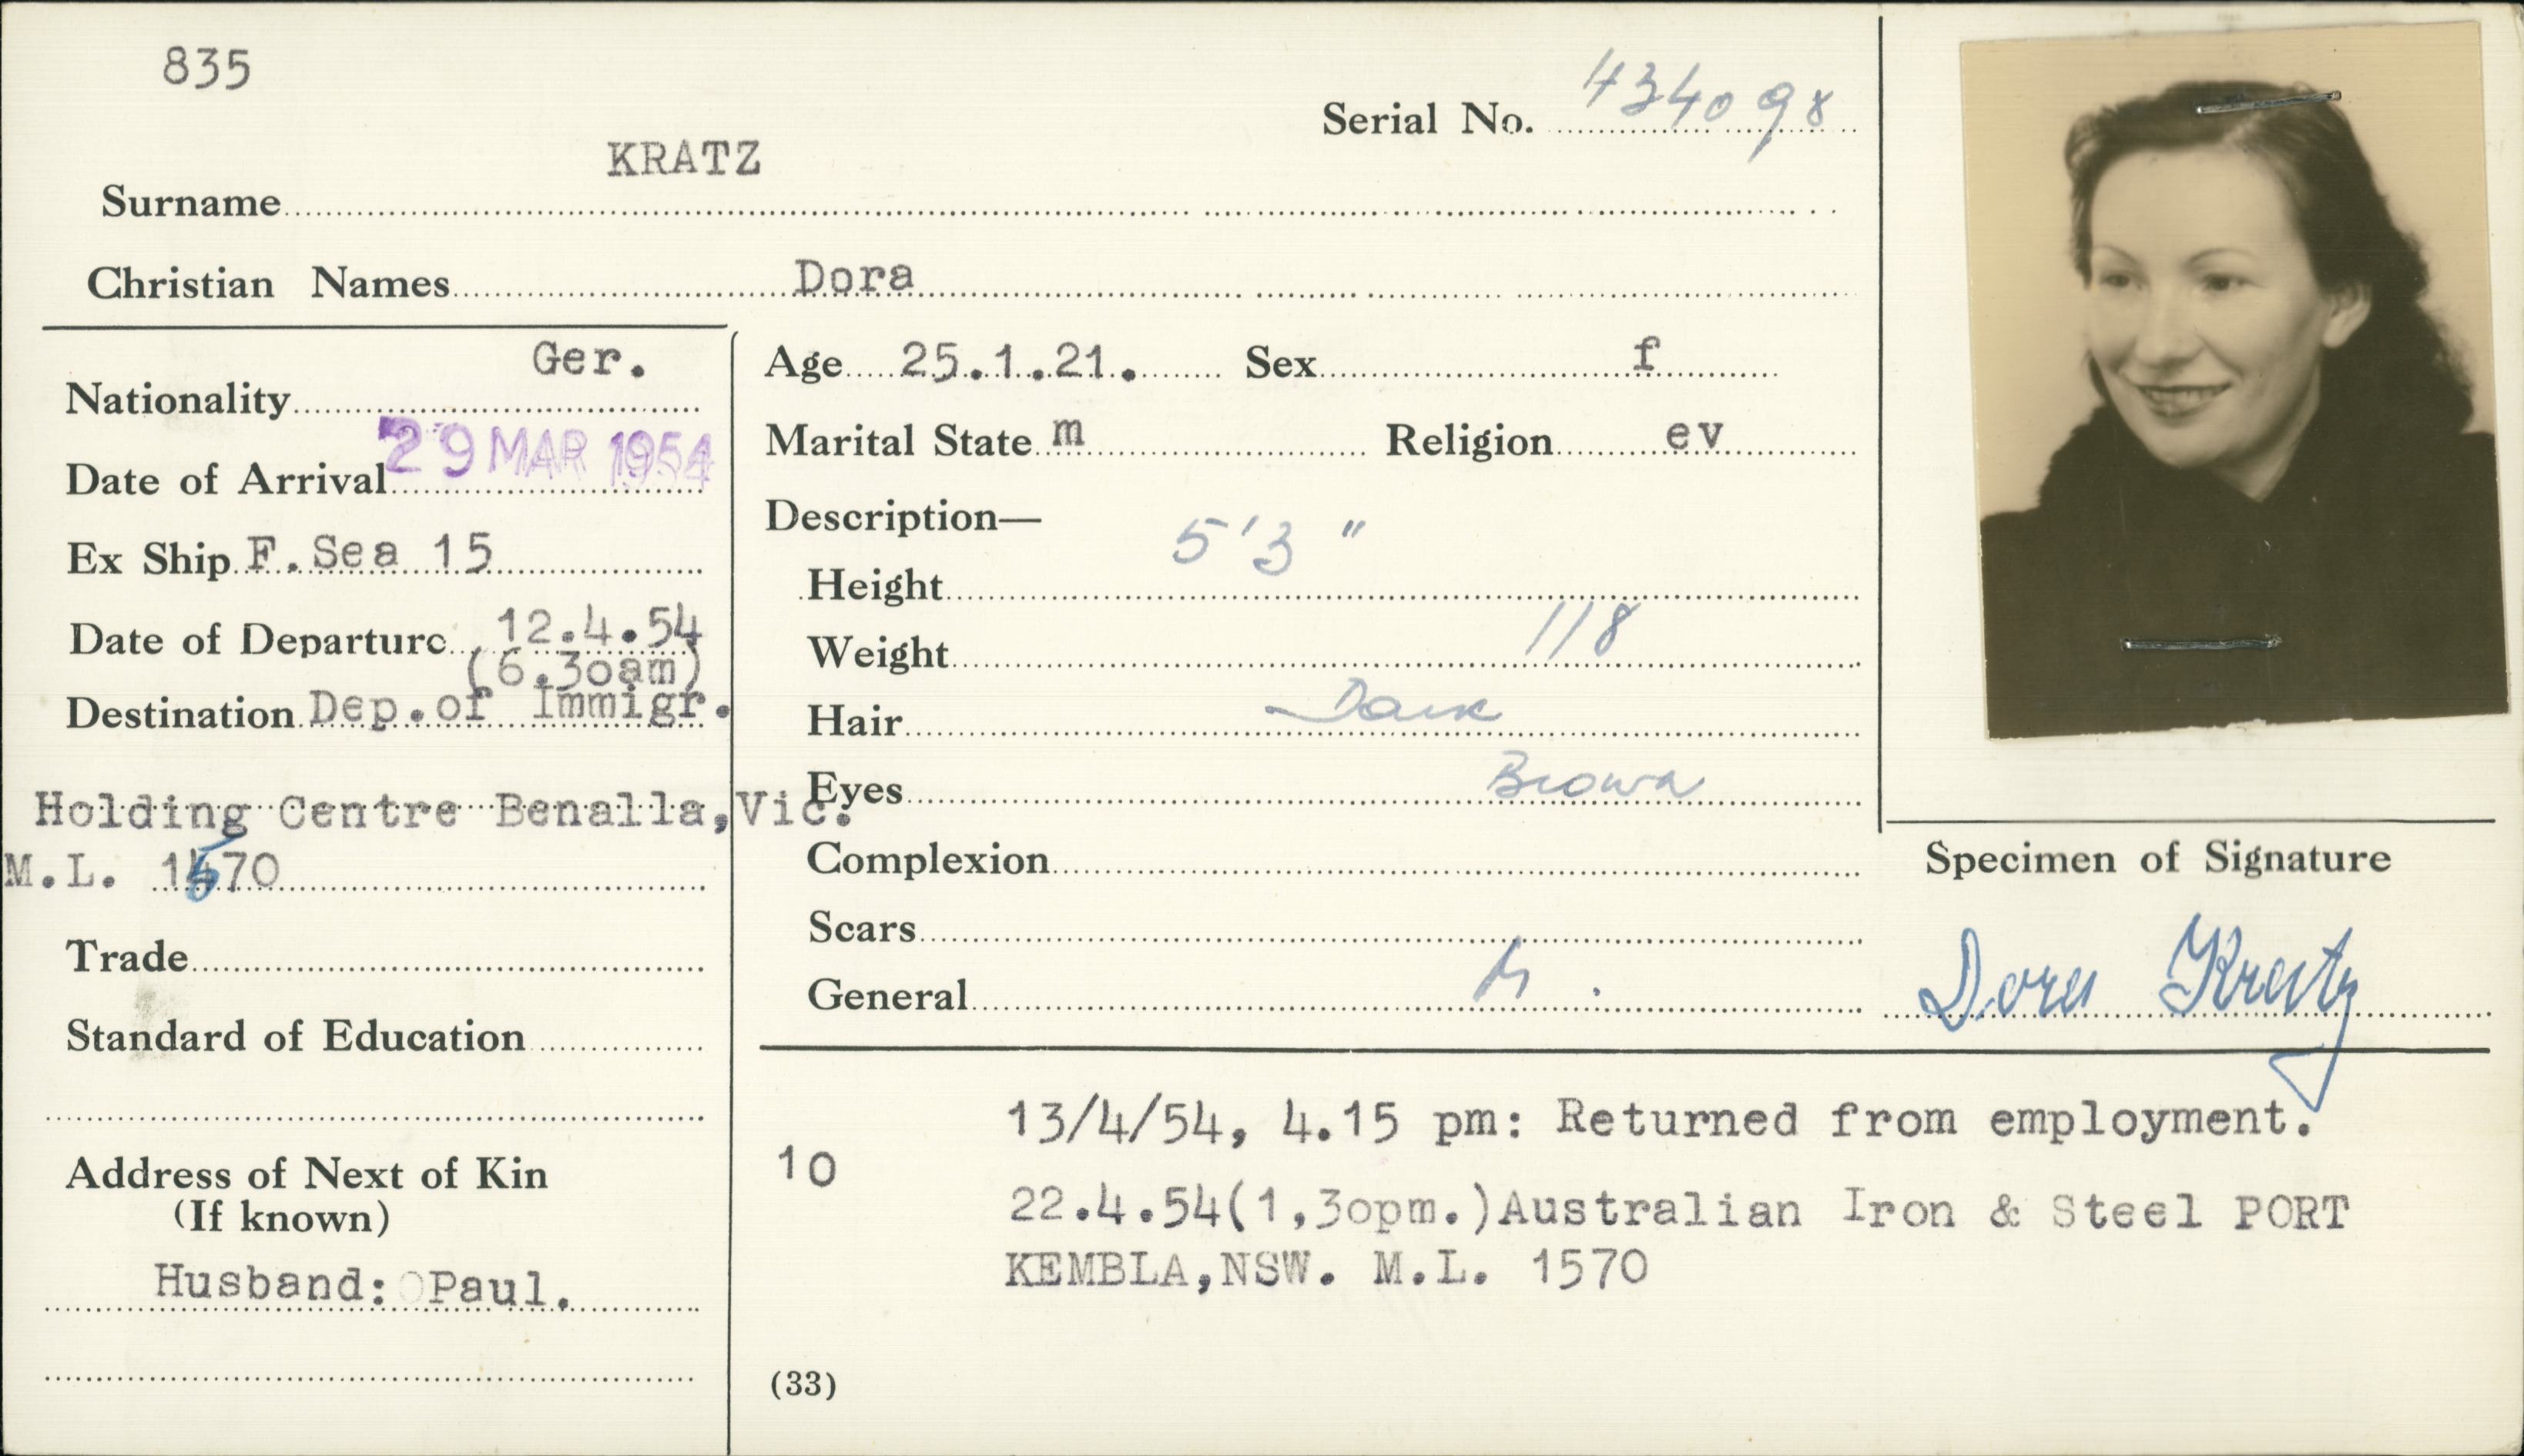 835
Serial No. 434098
KRATZ
Surname
Christian Names Dora
Nationality Ger.
Date of Arrival 29 MAR 1954
Ex Ship F.Sea 15
Date of Departure 12.4.54
(6.3oam)
Destination Dep.of Immigr.
Holding Centre Benalla,Vic.
M.L. 1570
Trade
Standard of Education
Address of Next of Kin
(If known)
Husband: Paul.
Age 25.1.21. Sex f
Marital State m Religion ev
Description—
Height 5'3"
Weight 118
Hair Dark
Eyes Brown
Complexion
Scars
General
Specimen of Signature
Dora Kratz
10
13/4/54, 4.15 pm: Returned from employment.
22.4.54(1,3opm.)Australian Iron & Steel PORT
KEMBLA,NSW. M.L. 1570
(33)